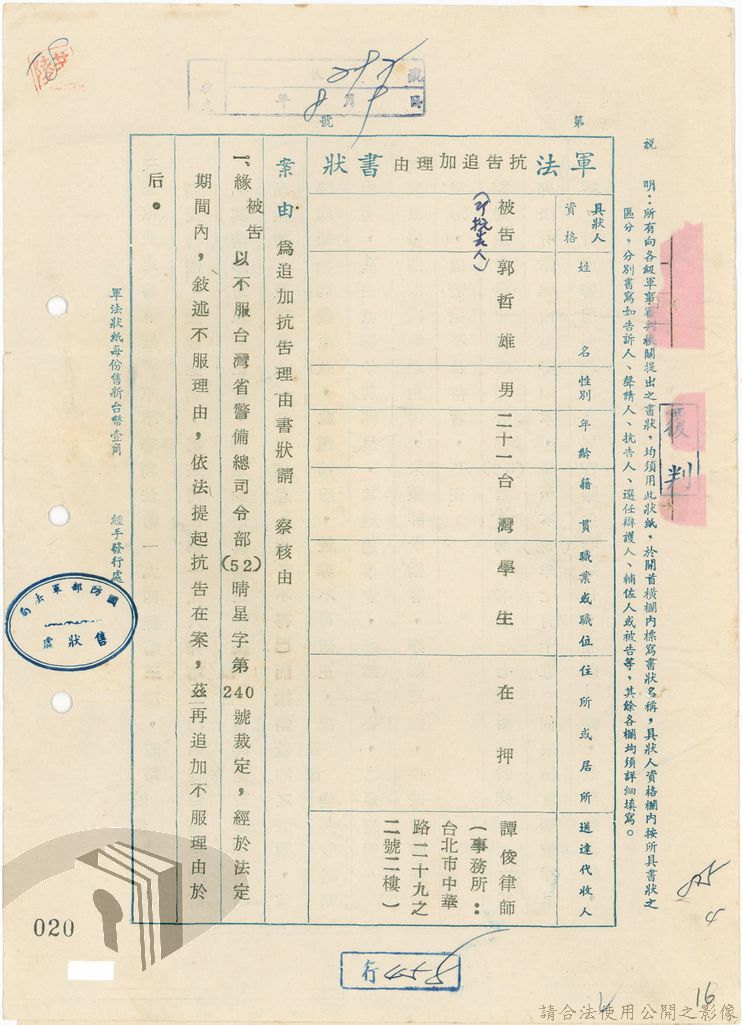 說　明：所有向各級軍事審判機關提出之書狀，均須用此狀紙，於開首橫欄內標寫書狀名稱，具狀人資格欄內按所具書狀之
區分，分別書寫如告訴人、聲請人、抗告人、選任辯護人、輔佐人或被告等，其餘各欄均須詳細填寫。
覆判
第
號
號
年 月 日
軍法抗告追加理由書狀
具狀人
資格
姓名
性別
年齡
籍貫
職業或職位
住所或居所
送達代收人
被告
（即抗告人）
郭哲雄
男
二十一
台灣
學生
在押
譚俊律師
（事務所：
台北市中華
路二十九之
二號二樓）
案由
為追加抗告理由書狀請 察核由
一、緣被告以不服台灣省警備總司令部(52)晴星字第240號裁定，經於法定
期間內，敘述不服理由，依法提起抗告在案，茲再追加不服理由於
后。
軍法狀紙每份售新台幣壹角
經手發行處
國防部軍法局
售狀處
行
020
4
16
請合法使用公開之影像